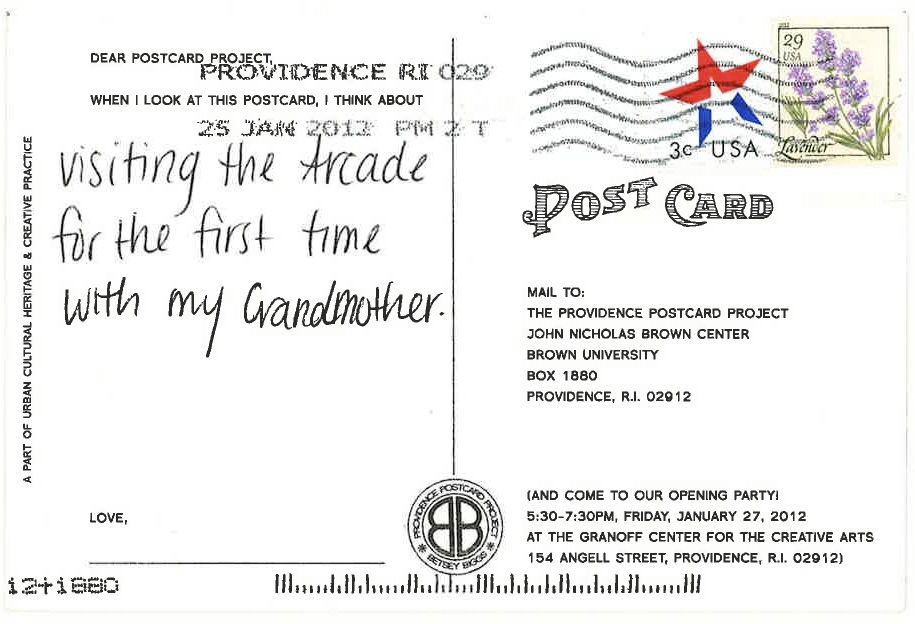 DEAR POSTCARD PROJECT,
PROVIDENCE RI 029
WHEN I LOOK AT THIS POSTCARD, I THINK ABOUT
25 JAN 2012 PM 2 T
visiting the Arcade
for the first time
with my Grandmother.
LOVE,
A PART OF URBAN CULTURAL HERITAGE & CREATIVE PRACTICE
29
USA
Lavender
3c USA
POST CARD
MAIL TO:
THE PROVIDENCE POSTCARD PROJECT
JOHN NICHOLAS BROWN CENTER
BROWN UNIVERSITY
BOX 1880
PROVIDENCE, R.I. 02912
(AND COME TO OUR OPENING PARTY!
5:30-7:30PM, FRIDAY, JANUARY 27, 2012
AT THE GRANOFF CENTER FOR THE CREATIVE ARTS
154 ANGELL STREET, PROVIDENCE, R.I. 02912)
PROVIDENCE POSTCARD PROJECT
BB
* BETSEY BIGGS *
12+1880